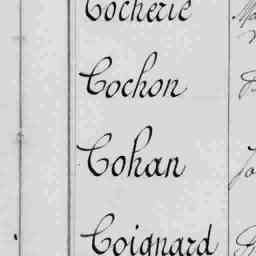 Cocherie
Cochon
Cohan
Coignard